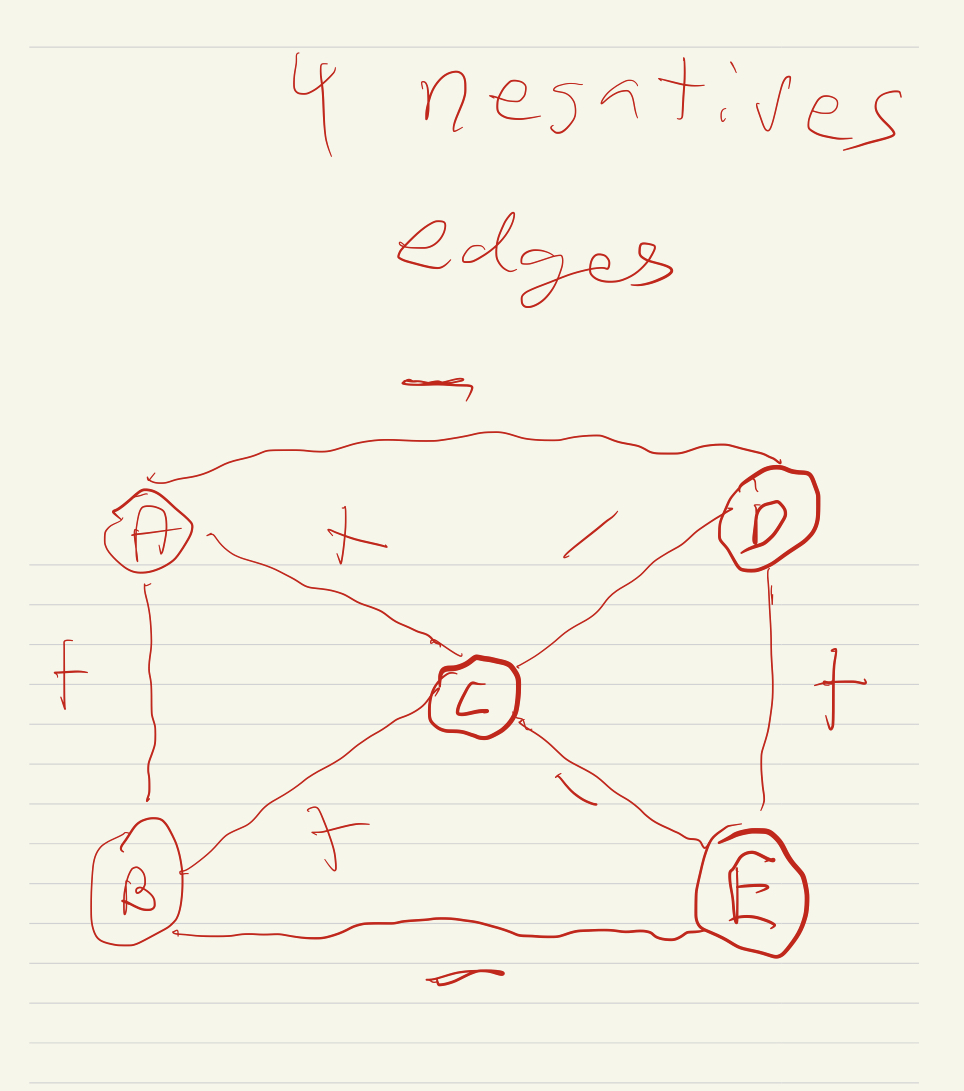 4 negatives
edges
-
A + - D
+ C +
-
B + E
-